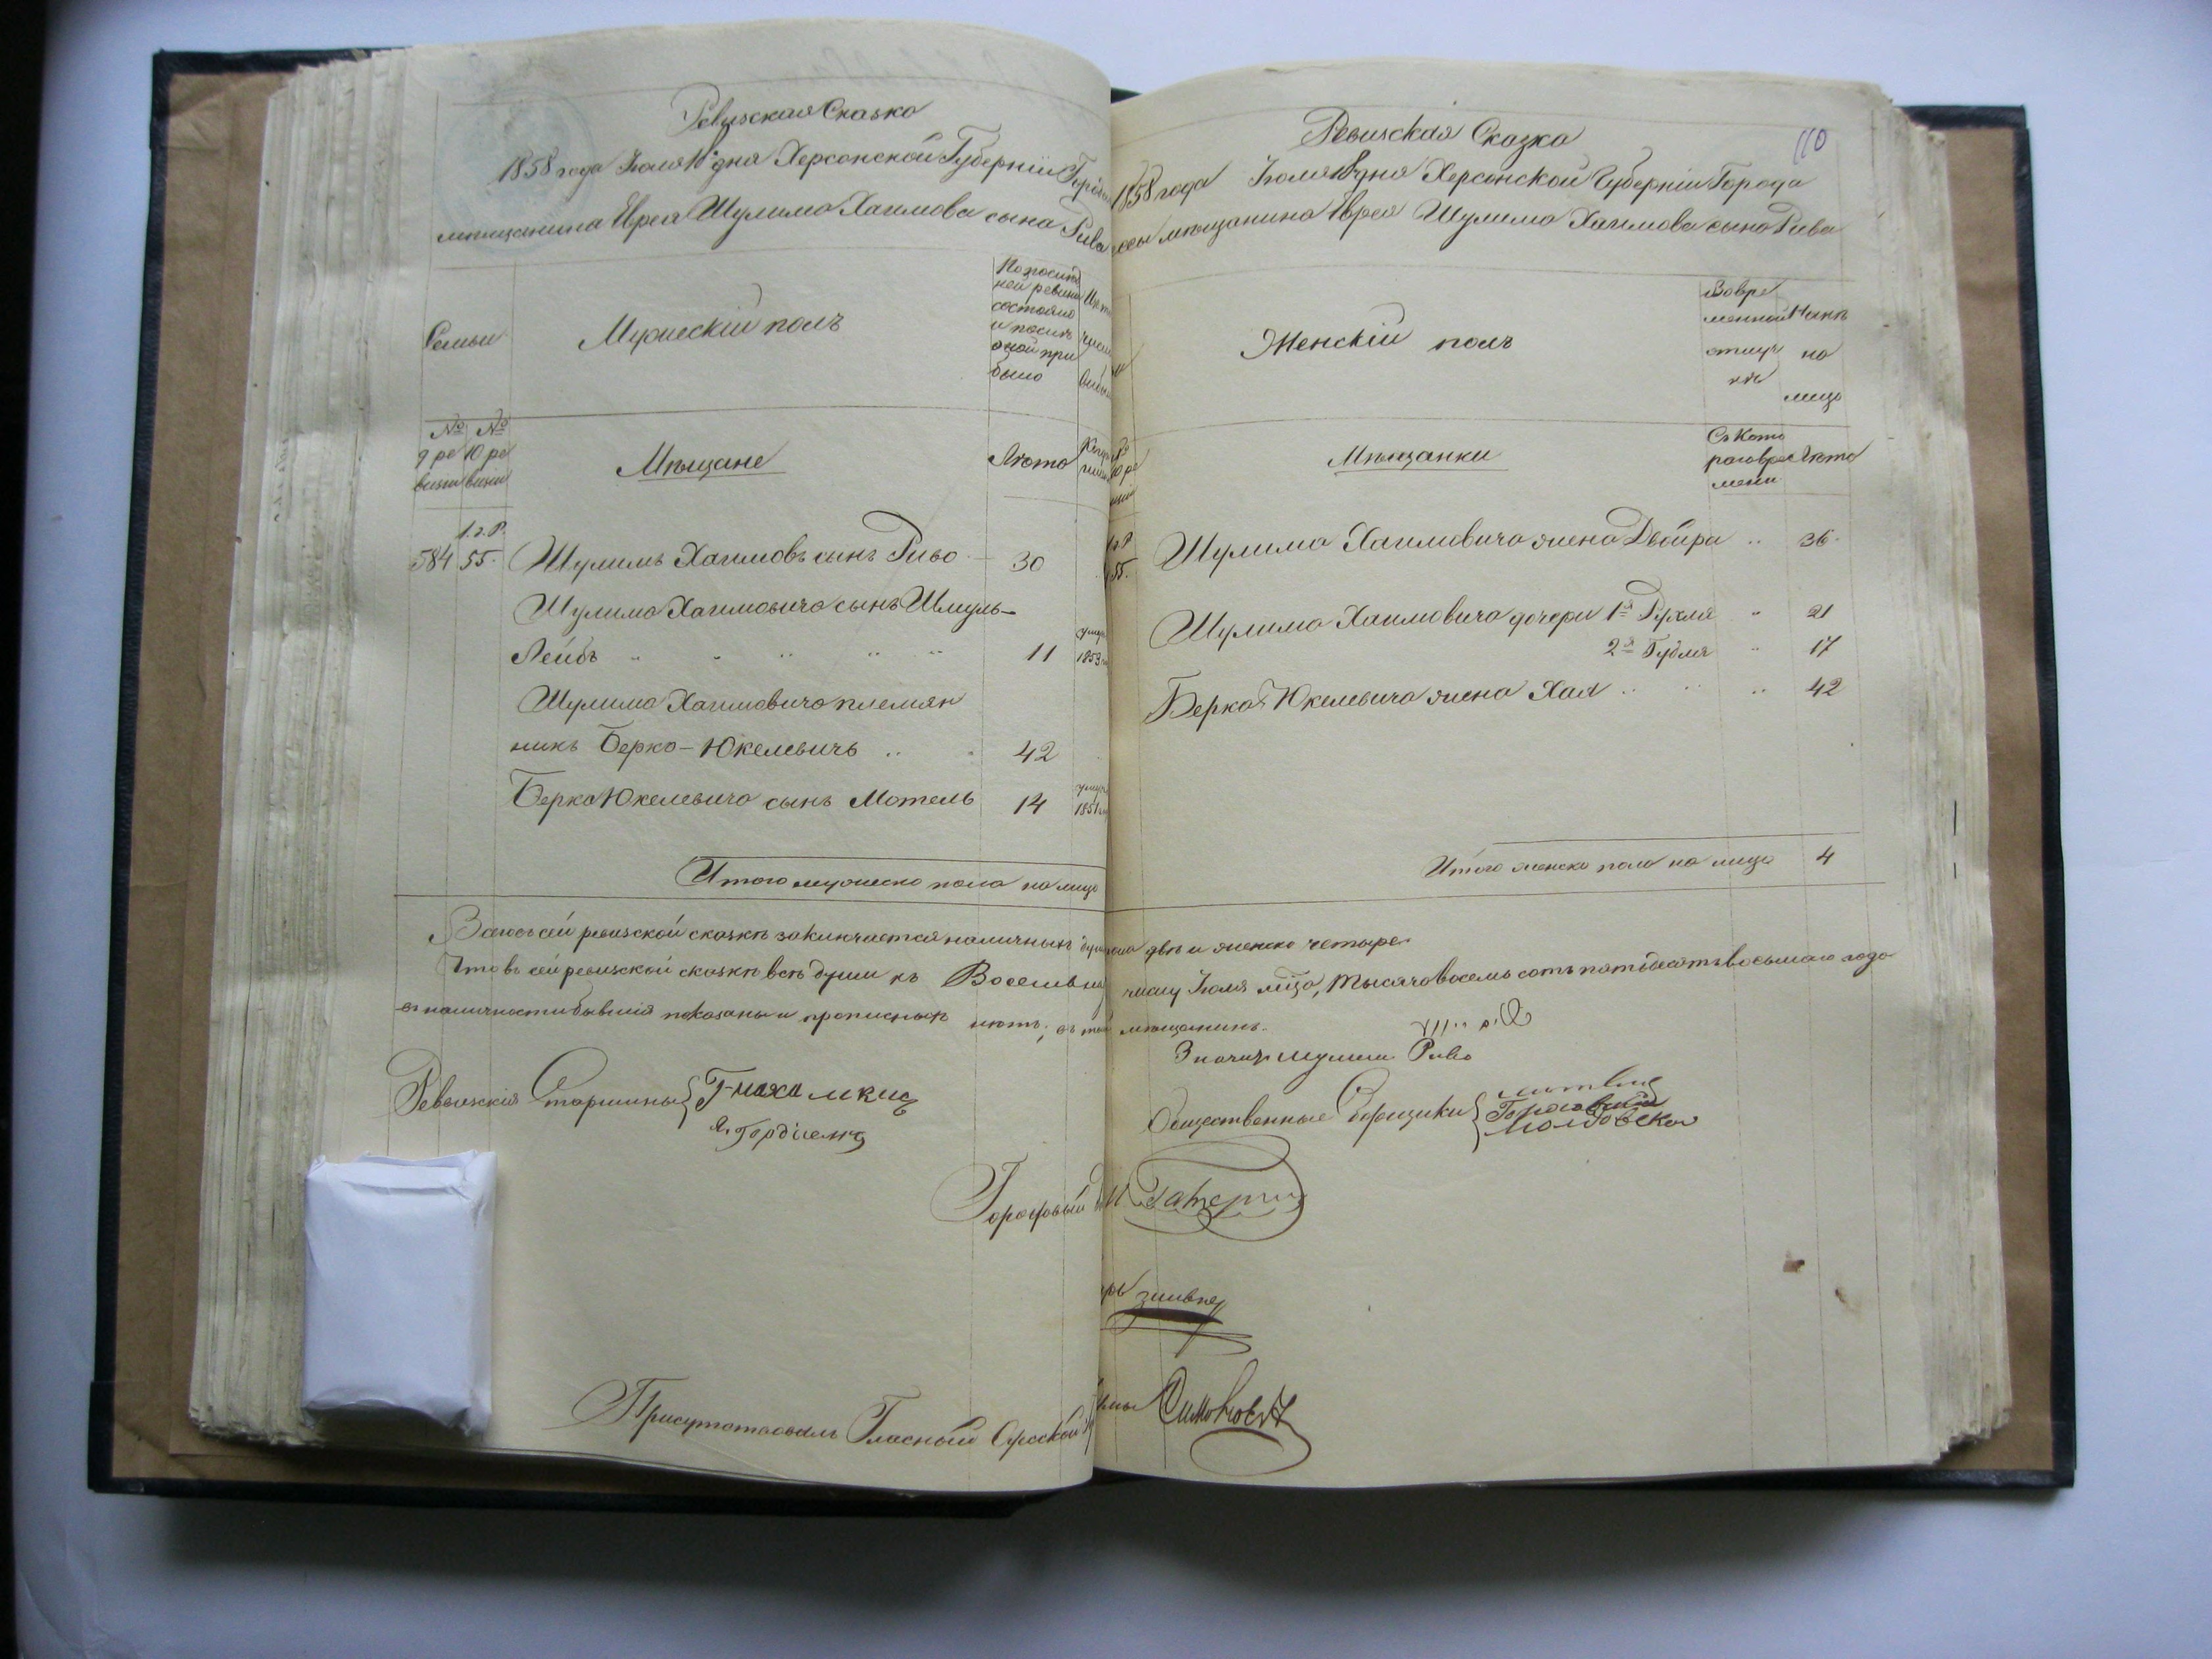 Ревизская Сказка
1858 года Іюля 18 дня Херсонской Губерніи Города
мѣщанина Еврея Шулима Хаимова сына Рива
Семьи
Мужескій полъ
По послѣд
ней ревизіи
состояло
и послѣ
оной при
было
Изъ
числа
№ №
9 ре 10 ре
визіи визіи
Мѣщане
Лѣта
1.г.Р.
584 55. Шулимъ Хаимовъ сынъ Риво 30
Шулима Хаимовича сынъ Шмуль-
Лейбъ 11 умре
1853
Шулима Хаимовича племян
никъ Берко-Юкелевичь 42
Берка Юкелевича сынъ Мотель 14 умре
1851
Итого мужеска пола на лицо
Ревизская Сказка
110
1858 года Іюля 18 дня Херсонской Губерніи Города
ссы мѣщанина Еврея Шулима Хаимова сына Рива
Женскій полъ
Во вре
менной
отлуч
кѣ
Нынѣ
на
лицо
№
10 ре
визіи
Мѣщанки
Съ кото
раго вре
мени
Лѣта
1.г.Р
55. Шулима Хаимовича жена Двойра 36.
Шулима Хаимовича дочери 1я Рухля 21
2я Гудля 17
Берка Юкелевича жена Хая 42
Итого женска пола на лицо 4
сей ревизской сказкѣ заключается наличныхъ душ два и женска четыре
Что въ сей ревизской сказкѣ всѣ души къ Восемьна числу Іюля мѣца, Тысяча восемь сотъ пятьдесятъ восьмаго года
въ наличности бывшія показаны и прописныхъ нѣтъ; въ томъ мѣщанинъ.
Значитъ Шулим Риво
Ревизскіе Старшины
Я. Гордіенко
Общественные Сборщики
Городовый
Присутствовалъ Гласный Одесской Думы